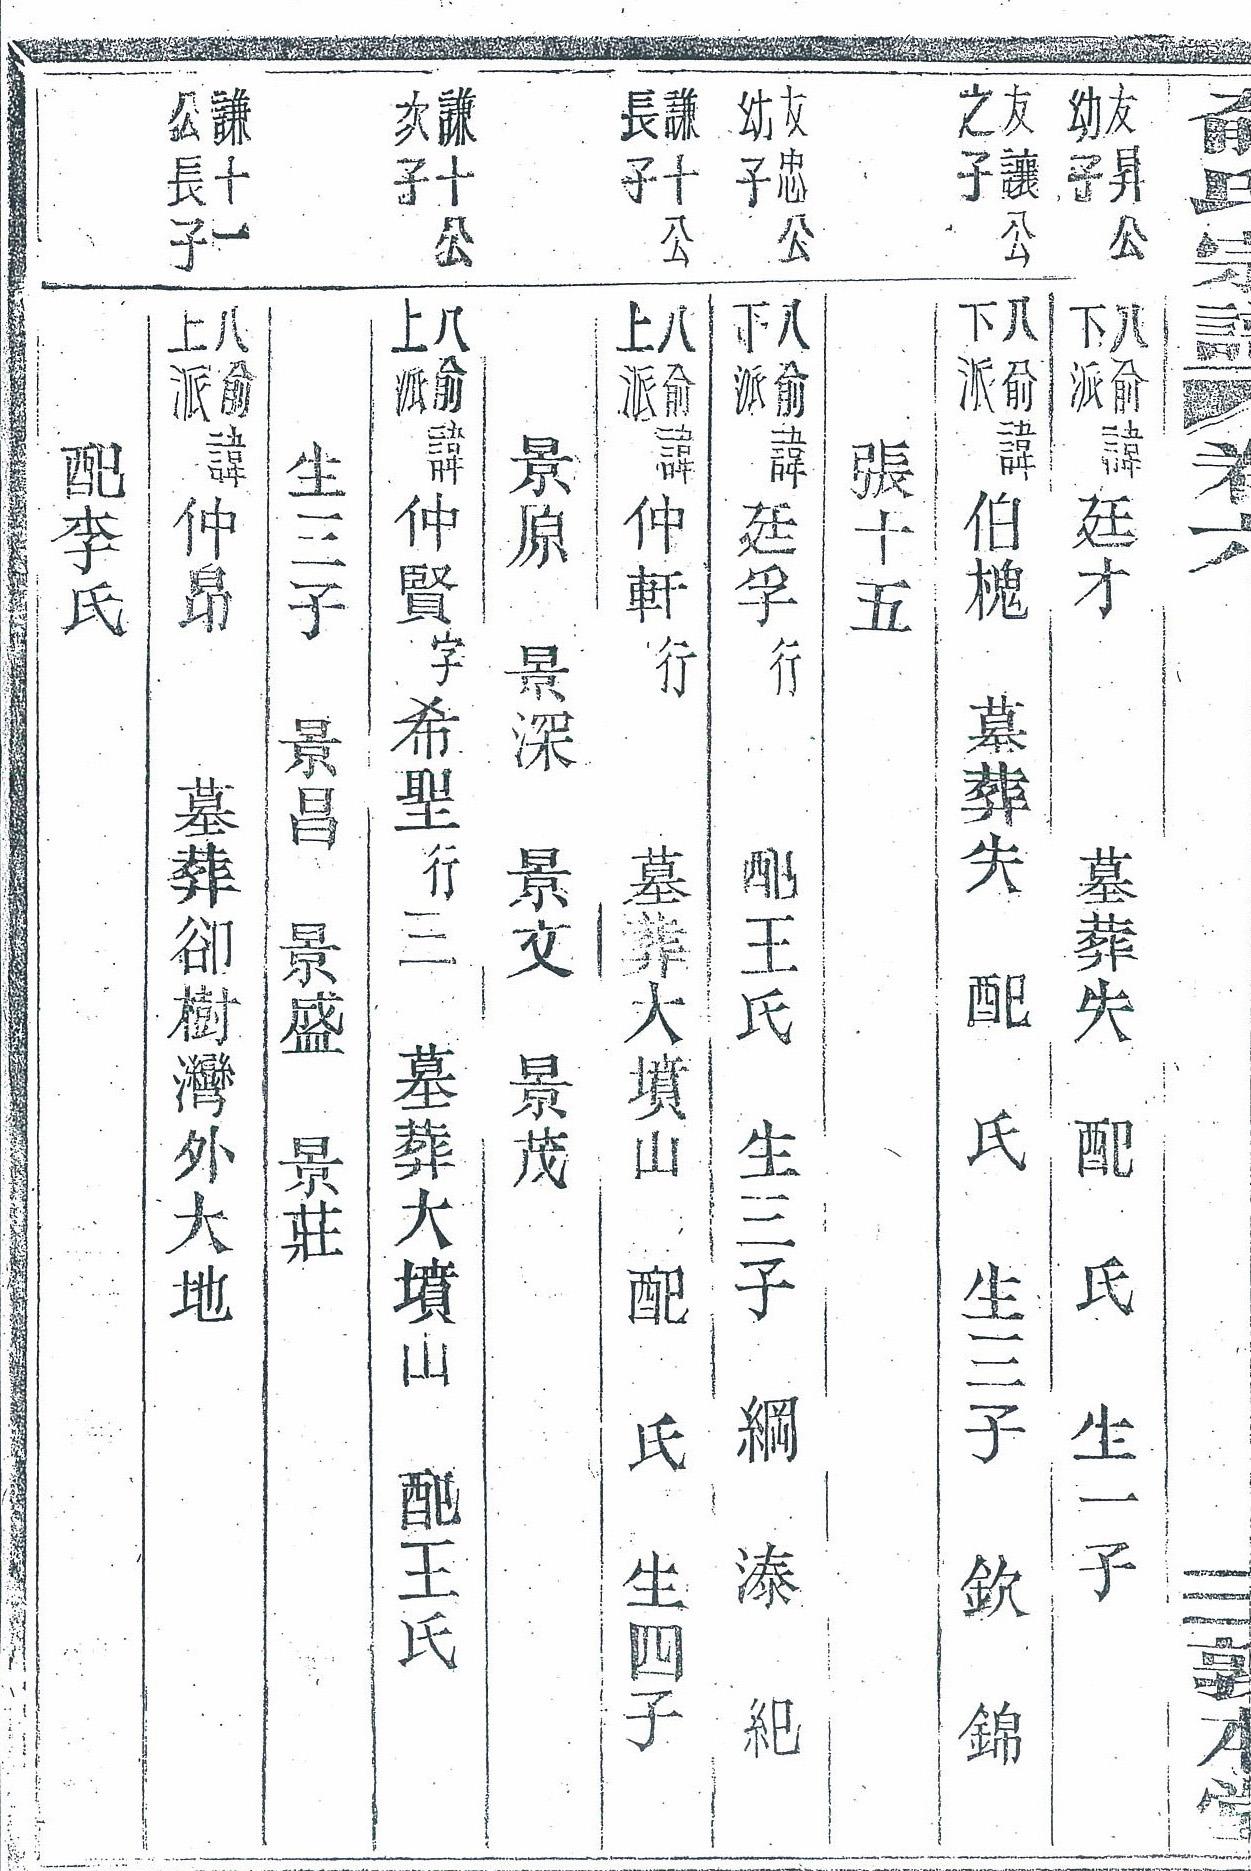 俞氏宗譜 卷六 三 敦本堂
友昇公
幼子
八俞
下派
諱廷才 墓葬失 配 氏 生一子
友讓公
之子
八俞
下派
諱伯槐 墓葬失 配 氏 生三子 欽 錦
張十五
友忠公
幼子
八俞
下派
諱廷孚行 配王氏 生三子 綱 溱 紀
謙十公
長子
八俞
上派
諱仲軒行 墓葬大墳山 配 氏 生四子
景原 景深 景文 景茂
謙十公
次子
八俞
上派
諱仲賢字希聖行三 墓葬大墳山 配王氏
生三子 景昌 景盛 景莊
謙十一
公長子
八俞
上派
諱仲昂 墓葬卻樹灣外大地
配李氏